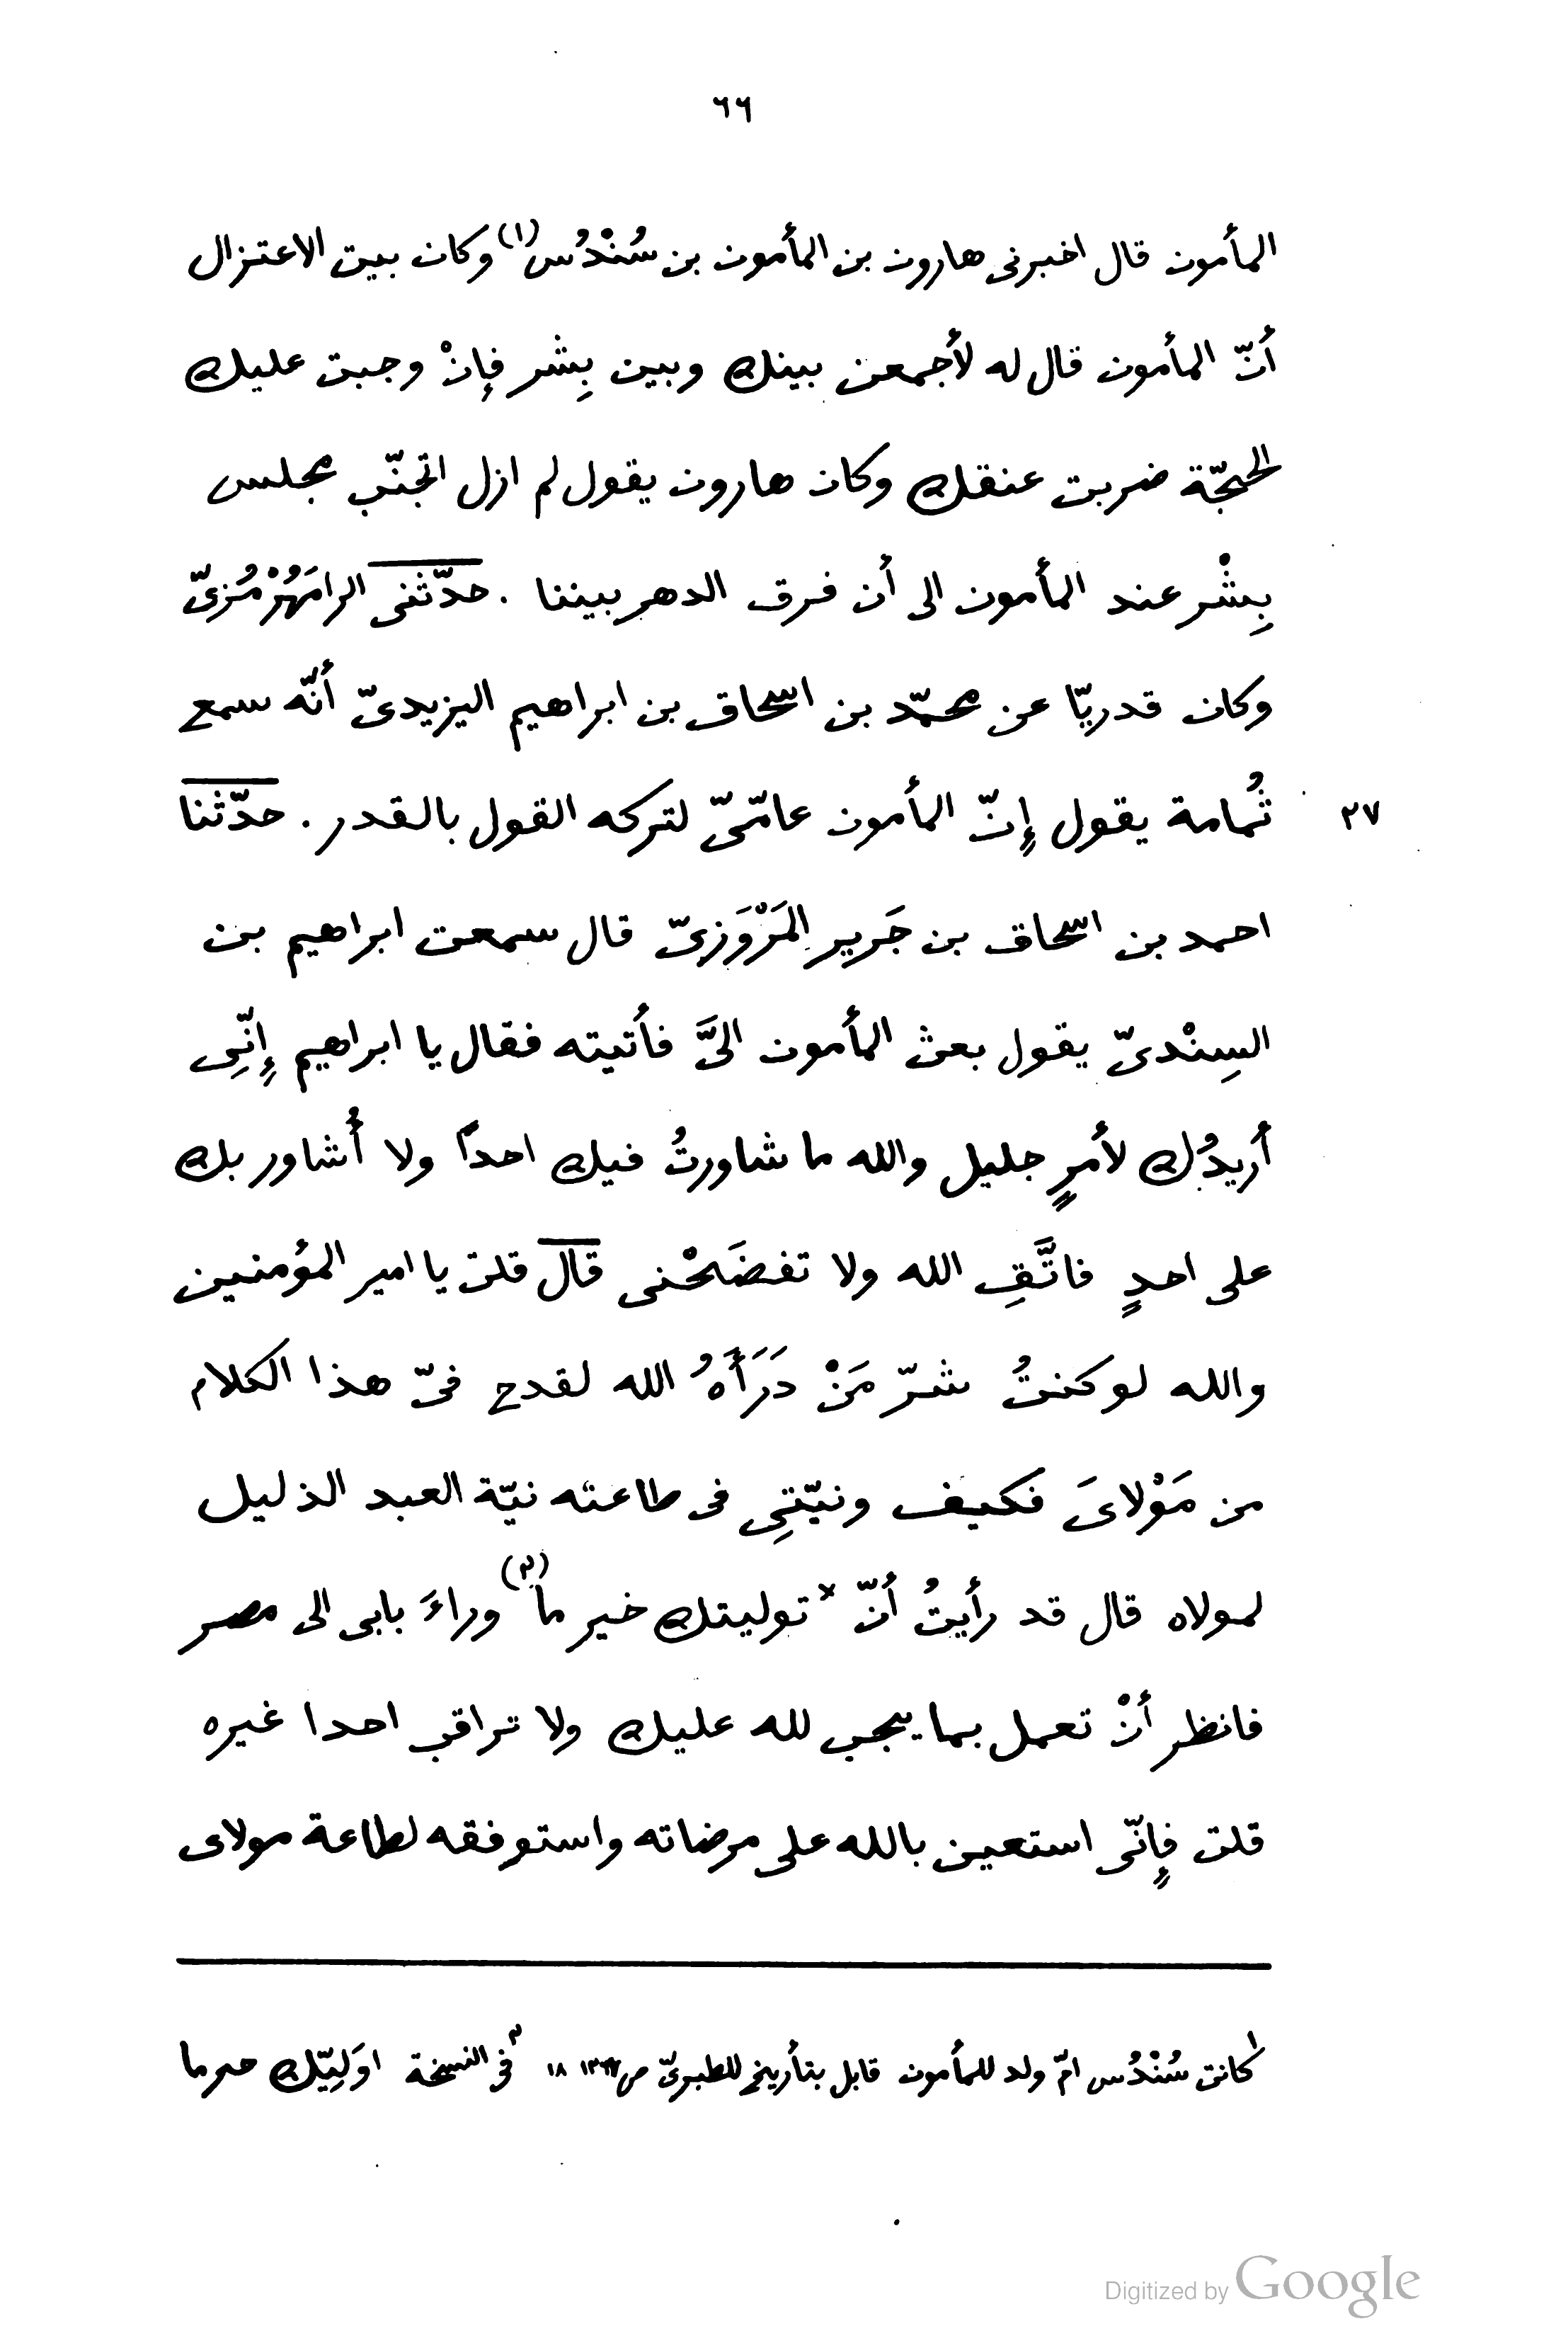 ٦٦
المأمون قال اخبرنى هارون بن المأمون بن سُنْدُس(١) وكان بيت الاعتزال
أنّ المأمون قال له لأجمعن بينك وبين بِشر فإنْ وجبت عليك
الحجّة ضربت عنقك وكان هارون يقول لم ازل اتجنّب مجلس
بِشْر عند المأمون الى أن فرق الدهر بيننا . حدّثنى الرامَهُرْمُزىّ
وكان قدريّا عن محمّد بن اسحاق بن ابراهيم اليزيدىّ أنّه سمع
ثُمامة يقول إنّ المأمون عامّىّ لتركه القول بالقدر . حدّثنا
٣٧
احمد بن اسحاق بن جَرير المَرْوَزىّ قال سمعت ابراهيم بن
السِنْدىّ يقول بعث المأمون الىَّ فأتيته فقال يا ابراهيم إنّى
أريدُك لأمرٍ جليل والله ما شاورتُ فيك احداً ولا أُشاور بك
على احدٍ فاتَّقِ الله ولا تفضَحْنى قال قلت يا امير المؤمنين
والله لو كنتُ شرّ مَنْ دَرَأَهُ الله لقدح فىّ هذا الكلام
من مَوْلاىَ فكيف ونيّتِى فى طاعته نيّة العبد الذليل
لمولاه قال قد رأيتُ أنّ * توليتك خير ما(٢) وراءَ بابى الى مصر
فانظر أنْ تعمل بما يجب لله عليك ولا تراقب احدا غيره
قلت فإنّى استعين بالله على مرضاته واستوفقه لطاعة مولاى
١ كانت سُنْدُس امّ ولد للمأمون قابل بتأريخ للطبرىّ ص ١٨ ٢ فى النسخة اوَلِيّك حرما
Digitized by Google